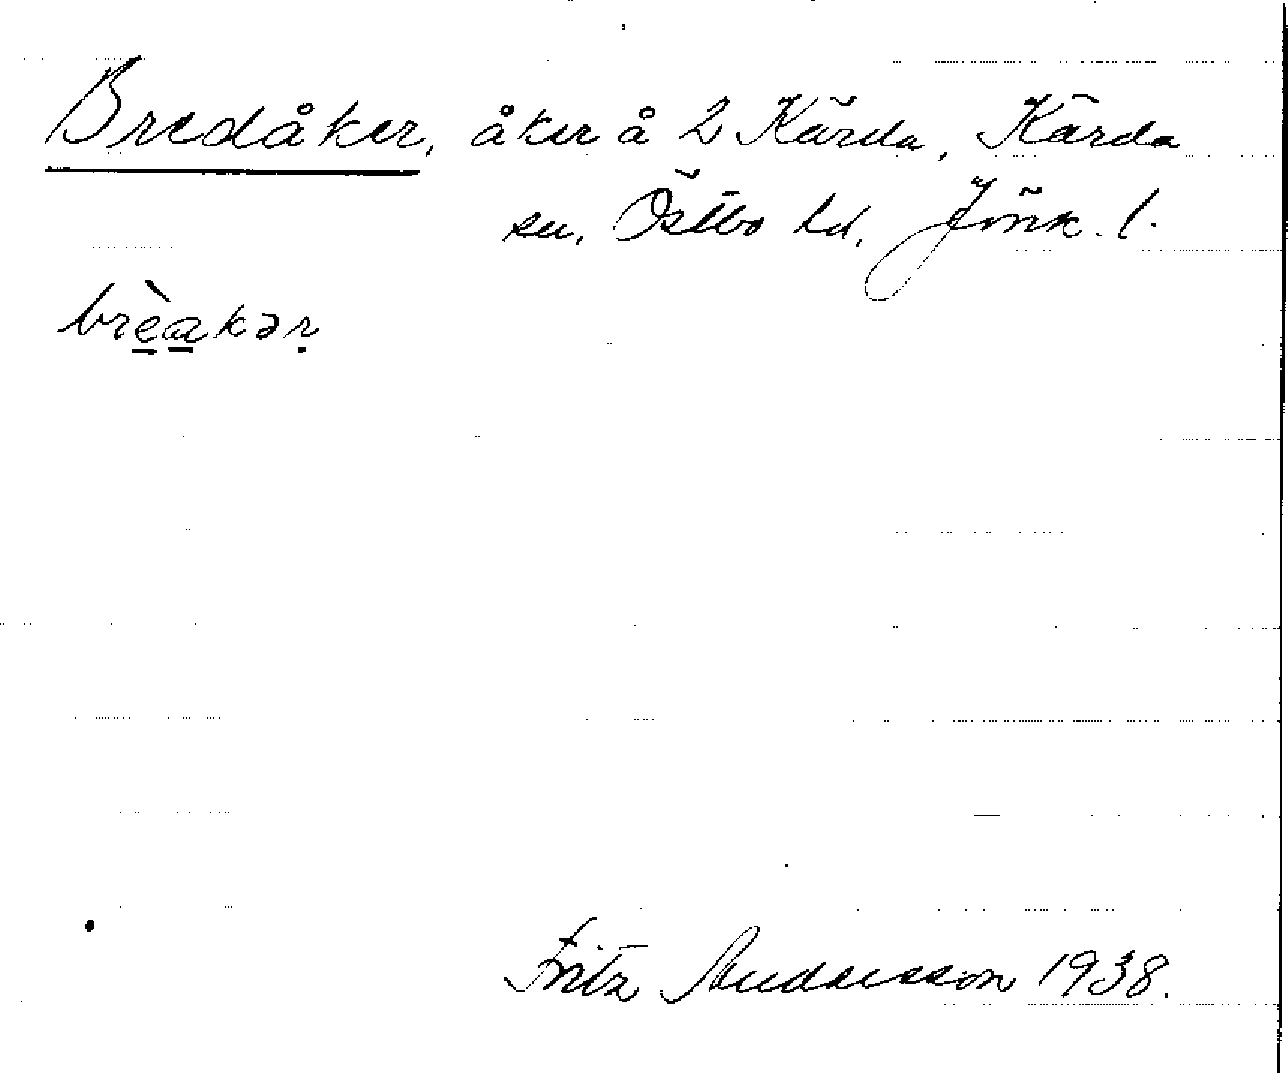 Bredåker, åker å 2 Kärda, Kärda
sn, Östbo hd, Jönk. l.
brèakər
Fritz Andersson 1938.